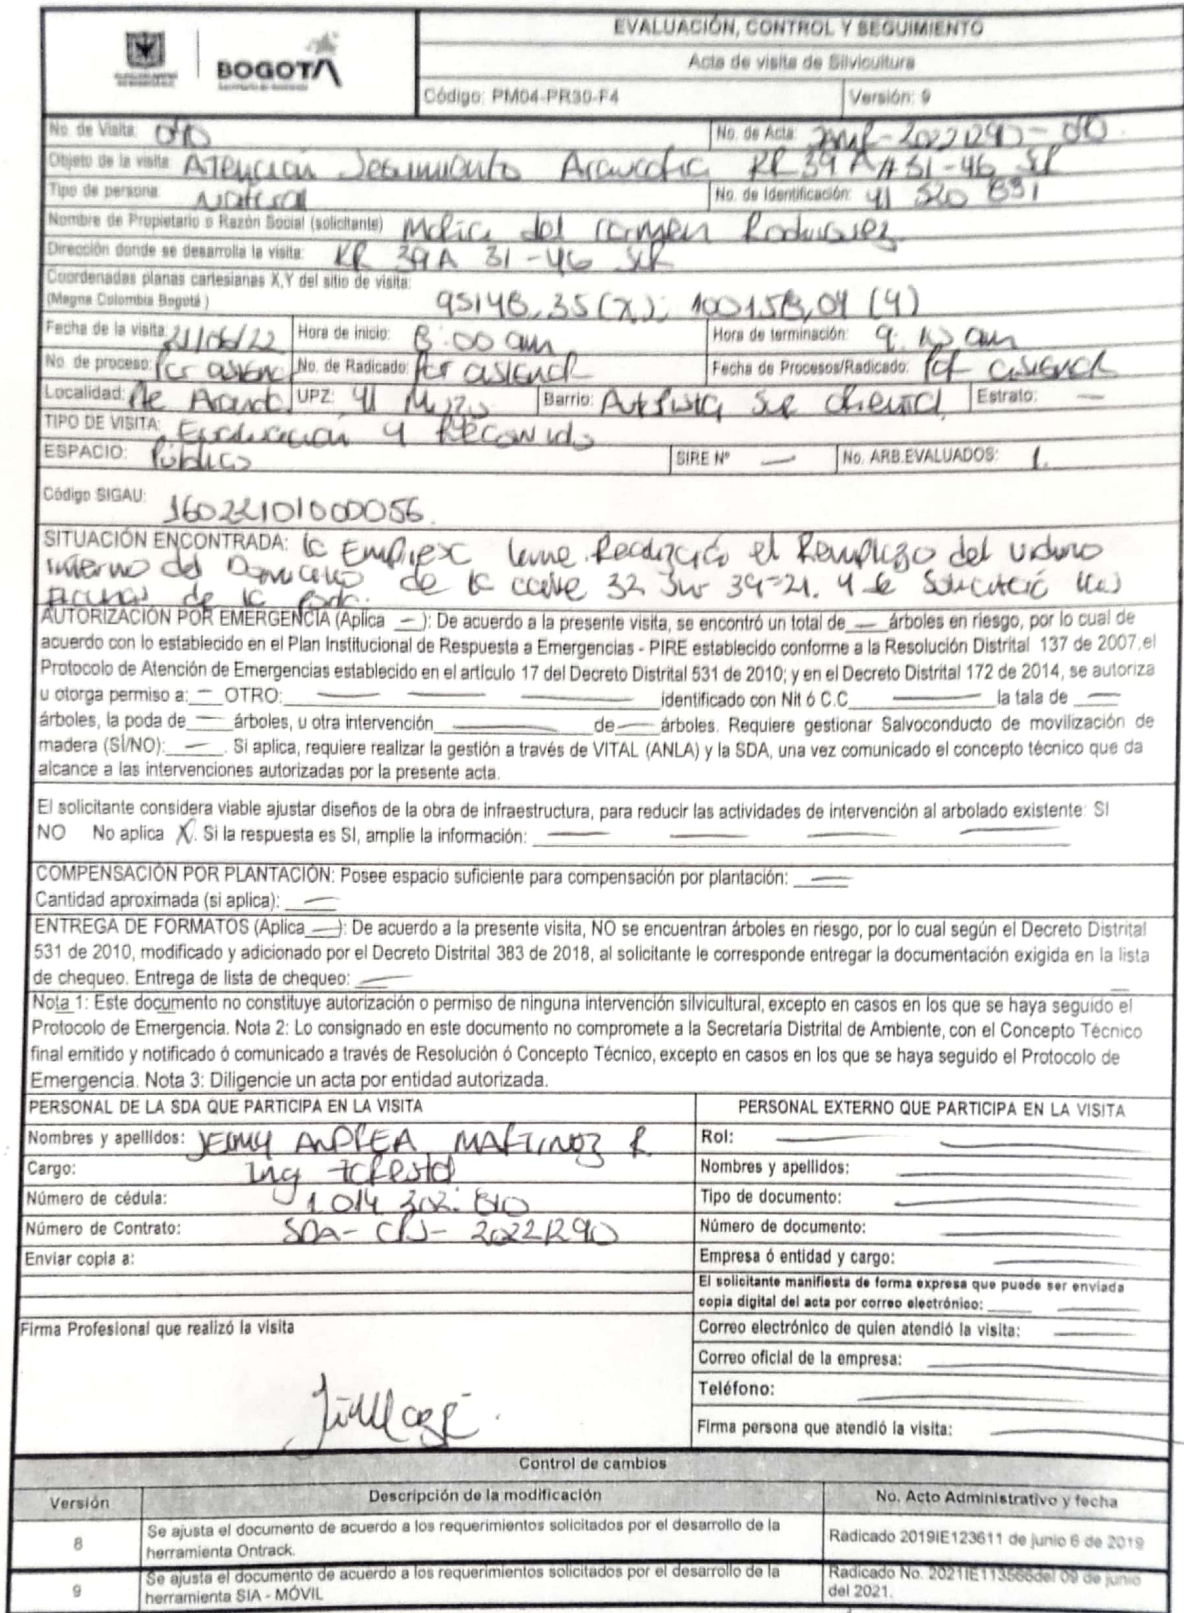 BOGOTÁ
EVALUACIÓN, CONTROL Y SEGUIMIENTO
Acta de visita de Silvicultura
Código: PM04-PR30-F4 Versión: 9
No. de Visita: No. de Acta:
Objeto de la visita: Atención Seguimiento Araucaria KR 39 A # 31-46 SUR
Tipo de persona: Natural No. de Identificación: 41 520 891
Nombre de Propietario o Razón Social (solicitante) Maria del carmen Rodriguez
Dirección donde se desarrolla la visita: KR 39A 31-46 SUR
Coordenadas planas cartesianas X,Y del sitio de visita:
(Magna Colombia Bogotá)
Fecha de la visita: 21/06/22 Hora de inicio: 8:00 am Hora de terminación: 9:10 am
No. de proceso: Por asignar No. de Radicado: Por asignar Fecha de Procesos/Radicado: Por asignar
Localidad: Pte Aranda UPZ: 41 Muzu Barrio: Autopista Sur Oriental Estrato: —
TIPO DE VISITA: Evaluación y Recorrido
ESPACIO: Público SIRE N° — No. ARB.EVALUADOS: 1.
Código SIGAU:
16022101000056
SITUACIÓN ENCONTRADA: la Empresa Realización el Remplazo del vidrio
interno del Domicilio de la calle 32 Sur 39-21. y se Solicitó
de la
AUTORIZACIÓN POR EMERGENCIA (Aplica —): De acuerdo a la presente visita, se encontró un total de — árboles en riesgo, por lo cual de
acuerdo con lo establecido en el Plan Institucional de Respuesta a Emergencias - PIRE establecido conforme a la Resolución Distrital 137 de 2007,el
Protocolo de Atención de Emergencias establecido en el artículo 17 del Decreto Distrital 531 de 2010; y en el Decreto Distrital 172 de 2014, se autoriza
u otorga permiso a: — OTRO: — — — identificado con Nit ó C.C — la tala de —
árboles, la poda de — árboles, u otra intervención — de — árboles. Requiere gestionar Salvoconducto de movilización de
madera (SÍ/NO): —. Si aplica, requiere realizar la gestión a través de VITAL (ANLA) y la SDA, una vez comunicado el concepto técnico que da
alcance a las intervenciones autorizadas por la presente acta.
El solicitante considera viable ajustar diseños de la obra de infraestructura, para reducir las actividades de intervención al arbolado existente: SI
NO No aplica X. Si la respuesta es SI, amplie la información: — — — —
COMPENSACIÓN POR PLANTACIÓN: Posee espacio suficiente para compensación por plantación: —
Cantidad aproximada (si aplica): —
ENTREGA DE FORMATOS (Aplica —): De acuerdo a la presente visita, NO se encuentran árboles en riesgo, por lo cual según el Decreto Distrital
531 de 2010, modificado y adicionado por el Decreto Distrital 383 de 2018, al solicitante le corresponde entregar la documentación exigida en la lista
de chequeo. Entrega de lista de chequeo: —
Nota 1: Este documento no constituye autorización o permiso de ninguna intervención silvicultural, excepto en casos en los que se haya seguido el
Protocolo de Emergencia. Nota 2: Lo consignado en este documento no compromete a la Secretaría Distrital de Ambiente, con el Concepto Técnico
final emitido y notificado ó comunicado a través de Resolución ó Concepto Técnico, excepto en casos en los que se haya seguido el Protocolo de
Emergencia. Nota 3: Diligencie un acta por entidad autorizada.
PERSONAL DE LA SDA QUE PARTICIPA EN LA VISITA PERSONAL EXTERNO QUE PARTICIPA EN LA VISITA
Nombres y apellidos: ANDREA MARTINEZ R Rol: —
Cargo: Ing Forestal Nombres y apellidos: —
Número de cédula: 1.014 202. 810 Tipo de documento: —
Número de Contrato: SDA-CPS-20221290 Número de documento: —
Enviar copia a: Empresa ó entidad y cargo: —
El solicitante manifiesta de forma expresa que puede ser enviada
copia digital del acta por correo electrónico: —
Firma Profesional que realizó la visita Correo electrónico de quien atendió la visita: —
Correo oficial de la empresa: —
Teléfono: —
Firma persona que atendió la visita: —
Control de cambios
Versión Descripción de la modificación No. Acto Administrativo y fecha
8 Se ajusta el documento de acuerdo a los requerimientos solicitados por el desarrollo de la herramienta Ontrack. Radicado 2019IE123611 de junio 6 de 2019
9 Se ajusta el documento de acuerdo a los requerimientos solicitados por el desarrollo de la herramienta SIA - MÓVIL Radicado No. 2021IE113566del 09 de junio del 2021.